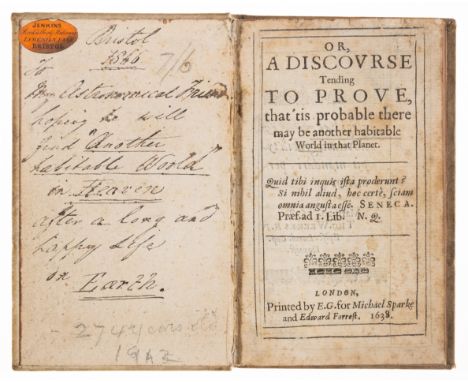 JENKINS
BRISTOL
Bristol
1866
7/6
To
my Astronomical Friend
hoping he will
find "Another
habitable World"
in Heaven
after a long and
happy Life
on
Earth.
274 years old
1942
OR,
A DISCOVRSE
Tending
TO PROVE,
that 'tis probable there
may be another habitable
World in that Planet.
Quid tibi inquis ista proderunt?
Si nihil aliud, hoc certè, sciam
omnia angusta esse. SENECA.
Præf. ad 1. Lib. N. Q.
LONDON,
Printed by E.G. for Michael Sparke
and Edward Forrest. 1638.